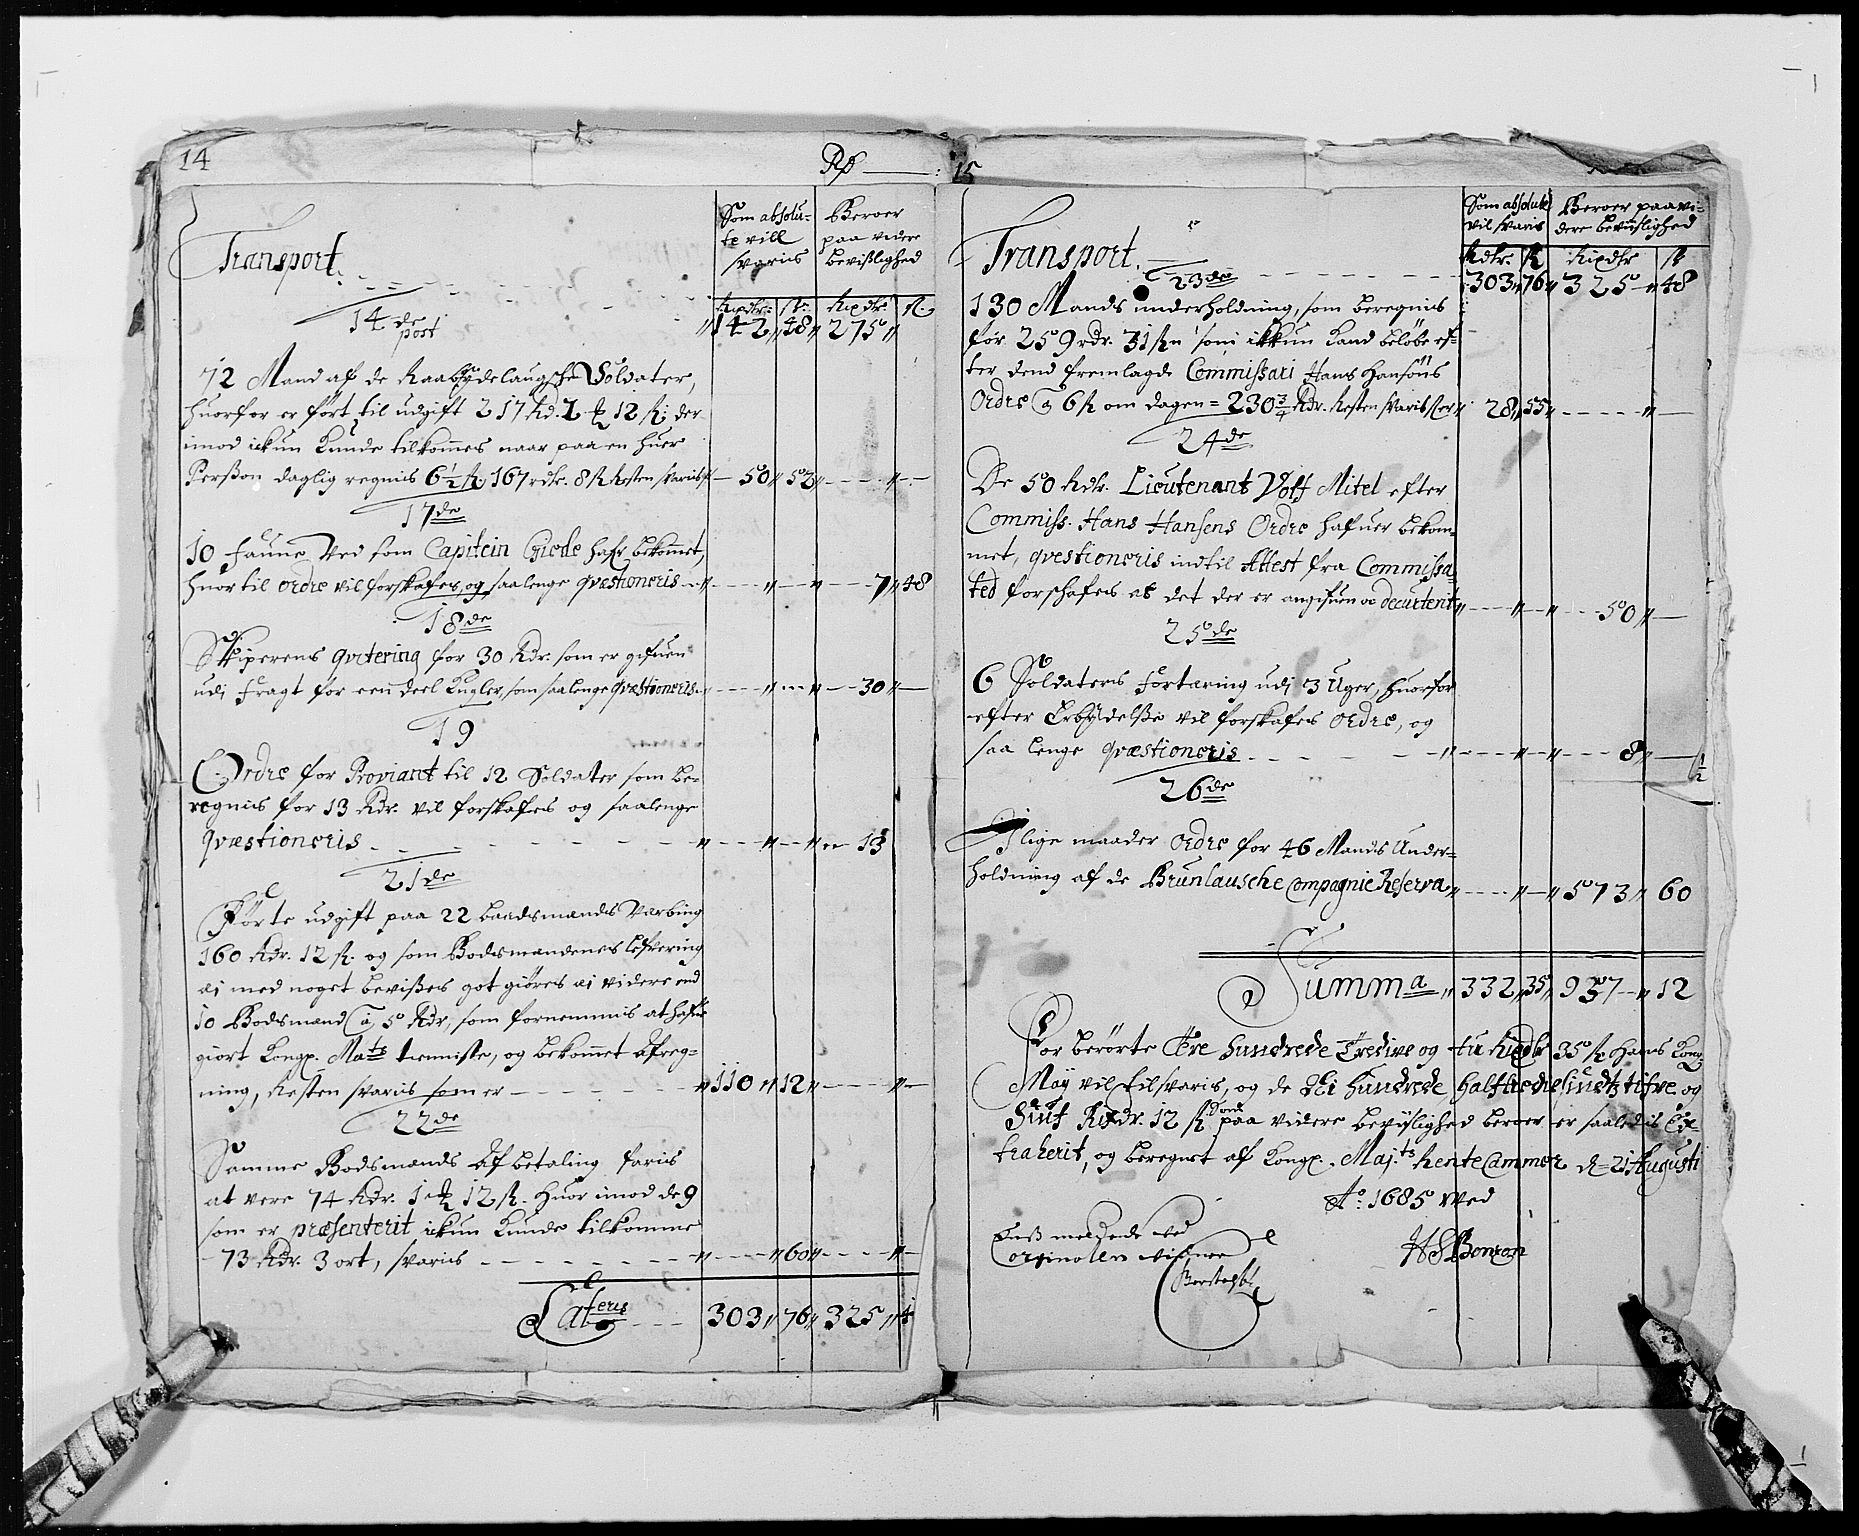 14
Rº
Som absolu-
te vill
svaris
Beroer
paa videre
bevißlighed
Transport
Rixdr. sk. Rixdr. sk.
14de post
142 48 275
72 Mand af de Raabygdelaugsche Soldater,
huorfor er fört til udgift 217 Rd. 1 ℔ 12 sk: der
imod ickun kunde tilkommes naar paa en huer
Perßon daglig regnis 6½ sk, 167 rdr. 8 sk Resten svaris 50 52
17de
10 faune Ved som Capitein Giede hafr bekommet,
huor til ordre vil forskafes og saalenge qvæstioneris 7 48
18de
Skiperens qvitering for 30 Rdr. som er gifuen
udi Fragt for een deel Kugler, som saalenge qvæstioneris 30
19
Ordre for Proviant til 12 Soldater som be-
regnis for 13 Rdr. vil forskafes og saalenge
qvæstioneris 13
21de
Förte udgift paa 22 baadsmands Varbing
160 Rdr. 12 sk. og som Bodsmandenes lefvering
ei med noget bevißes got giöres ei videre end
10 Bodsmand a 5 Rdr, som fornemmis at hafue
giort Kongl. Mats tienniste, og bekommet Afreg-
ning, Resten svaris som er 110 12
22de
Samme Bodsmands Af betaling svaris
at vere 74 Rdr. 1 ℔ 12 sk. huor imod de 9
som er præsenterit ickun kunde tilkomme
73 Rdr. 3 ort, svaris 60
Lateris 303 76 325 4
15
Som absolute
vil svaris
Beroer paa vi-
dere beviislighed
Transport
Rdr. sk Rixdr sk
303 76 325 48
23de
130 Mands underholdning, som beregnis
for 259 rdr. 31 sk som ickun kand belöbe ef-
ter dend fremlagde Commissari Hans Hansöns
Ordre a 6 sk om dagen = 230¾ Rdr. Resten svaris er 28 55
24de
De 50 Rdr. Lieutenant Volf Mitel efter
Commiss. Hans Hansens Ordre hafuer bekom-
met, qvestioneris indtil Attest fra Commissa-
ted forschafes at det der er angifuen oc decurterit 50
25de
6 Soldaters Fortæring udi 3 Uger, huorfor
efter Erbydelße vil forskafes ordre, og
saa lenge qvæstioneris 8
½
26de
I lige maader ordre for 46 Mands Under-
holdning af de Brunlausche Compagnie Reserva 573 60
Summa 332 35 957 12
For berörte Tre hundrede Tredive og tu Rixdr 35 sk hans Kong.
May vil tilsvaris, og de Ni hundrede halftrediesindtztifve og
Siuf Rixdr. 12 sk dend paa videre beviislighed beroer er saaledis Ex-
traherit, og beregnet af Kongl. Maj.ts Rente Cammer d = 21 Augusti
Aº. 1685 Wed
HSBonsen